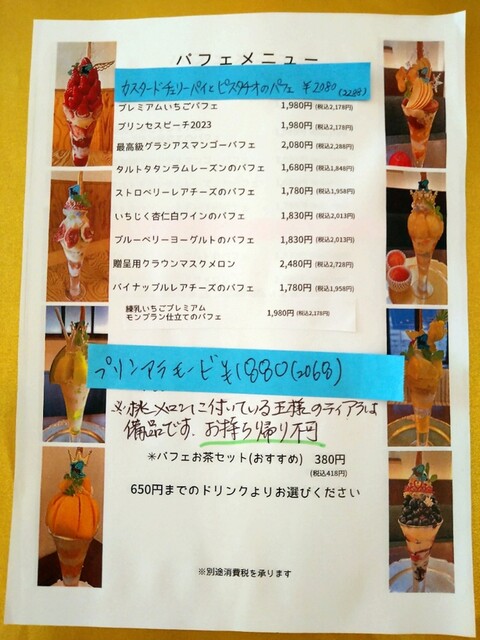 パフェメニュー
カスタードチェリーパイとピスタチオのパフェ ¥2080(2288)
プレミアムいちごパフェ 1,980円(税込2,178円)
プリンセスピーチ2023 1,980円(税込2,178円)
最高級グラシアスマンゴーパフェ 2,080円(税込2,288円)
タルトタタンラムレーズンのパフェ 1,680円(税込1,848円)
ストロベリーレアチーズのパフェ 1,780円(税込1,958円)
いちじく杏仁白ワインのパフェ 1,830円(税込2,013円)
ブルーベリーヨーグルトのパフェ 1,830円(税込2,013円)
贈呈用クラウンマスクメロン 2,480円(税込2,728円)
パイナップルレアチーズのパフェ 1,780円(税込1,958円)
練乳いちごプレミアム
モンブラン仕立てのパフェ 1,980円(税込2,178円)
プリンアラモード ¥1880(2068)
※桃、メロンに付いている王様のティアラは
備品です。お持ち帰り不可
※パフェお茶セット(おすすめ) 380円
(税込418円)
650円までのドリンクよりお選びください
※別途消費税を承ります